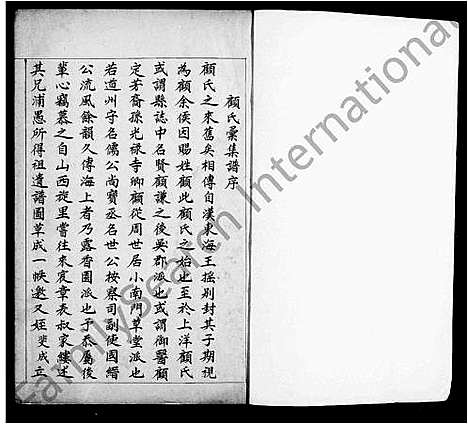 顧氏彙集譜序
顧氏之來舊矣相傳自漢東海王搖別封其子期視
為顧余侯因賜姓顧此顧氏之始也至於上洋顧氏
或謂縣誌中名賢顧謙之後吳郡派也或謂御醫顧
定芳裔孫光祿寺卿顧從周世居小南門草堂派也
若道州守名儒公尚寶丞名世公按察司副使國縉
公流風餘韻久傳海上者乃露香園派也予忝屬後
輩心竊慕之自山西旋里嘗往來宸章表叔家縷述
其兄浦愚所得祖遺譜圖草成一帙邀又姪斐成立
FamilySearch International